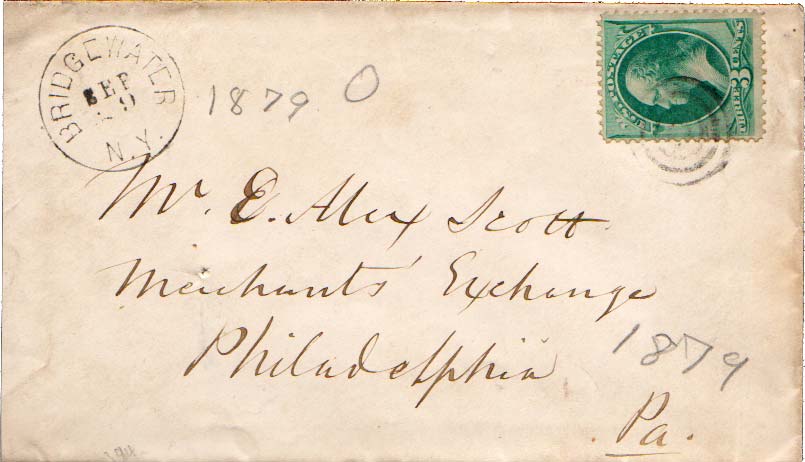 BRIDGEWATER
SEP
9
N.Y.
1879
U.S. POSTAGE
THREE 3 CENTS
Mr. E. Alex Scott
Merchants' Exchange
Philadelphia
1879
Pa.